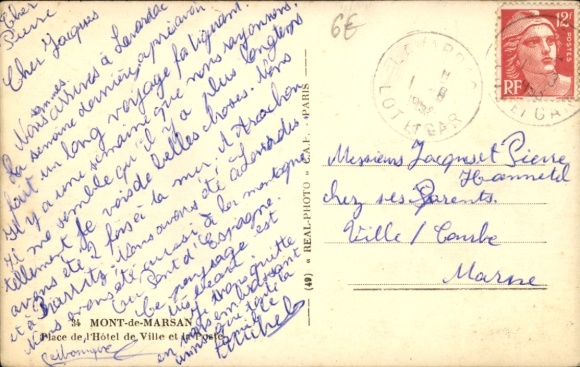 Cher
Pierre
Cher Jacques
Nous sommes arrivés à Lavardac
la semaine dernière, après avoir
fait un long voyage fatiguant.
Il y a une semaine que nous rayonnons.
Il me semble qu'il y a plus longtemps
tellement je vois de belles choses. Nous
avons été 2 fois à la mer. A Arcachon
et à Biarritz. Nous avons été à Lourdes.
Nous avons été aussi à la montagne
au d'Espagne.
Le paysage est
Je vous quitte
en vous embrassant
Michel
34 MONT-de-MARSAN
Place de l'Hôtel de Ville et la Poste
(49) « REAL-PHOTO » C.A.F. - PARIS
6€
LOT ET GAR
12F
POSTES
RF
ET GA
Messieurs Jacques et Pierre
chez ses Parents.
Ville / 
Marne